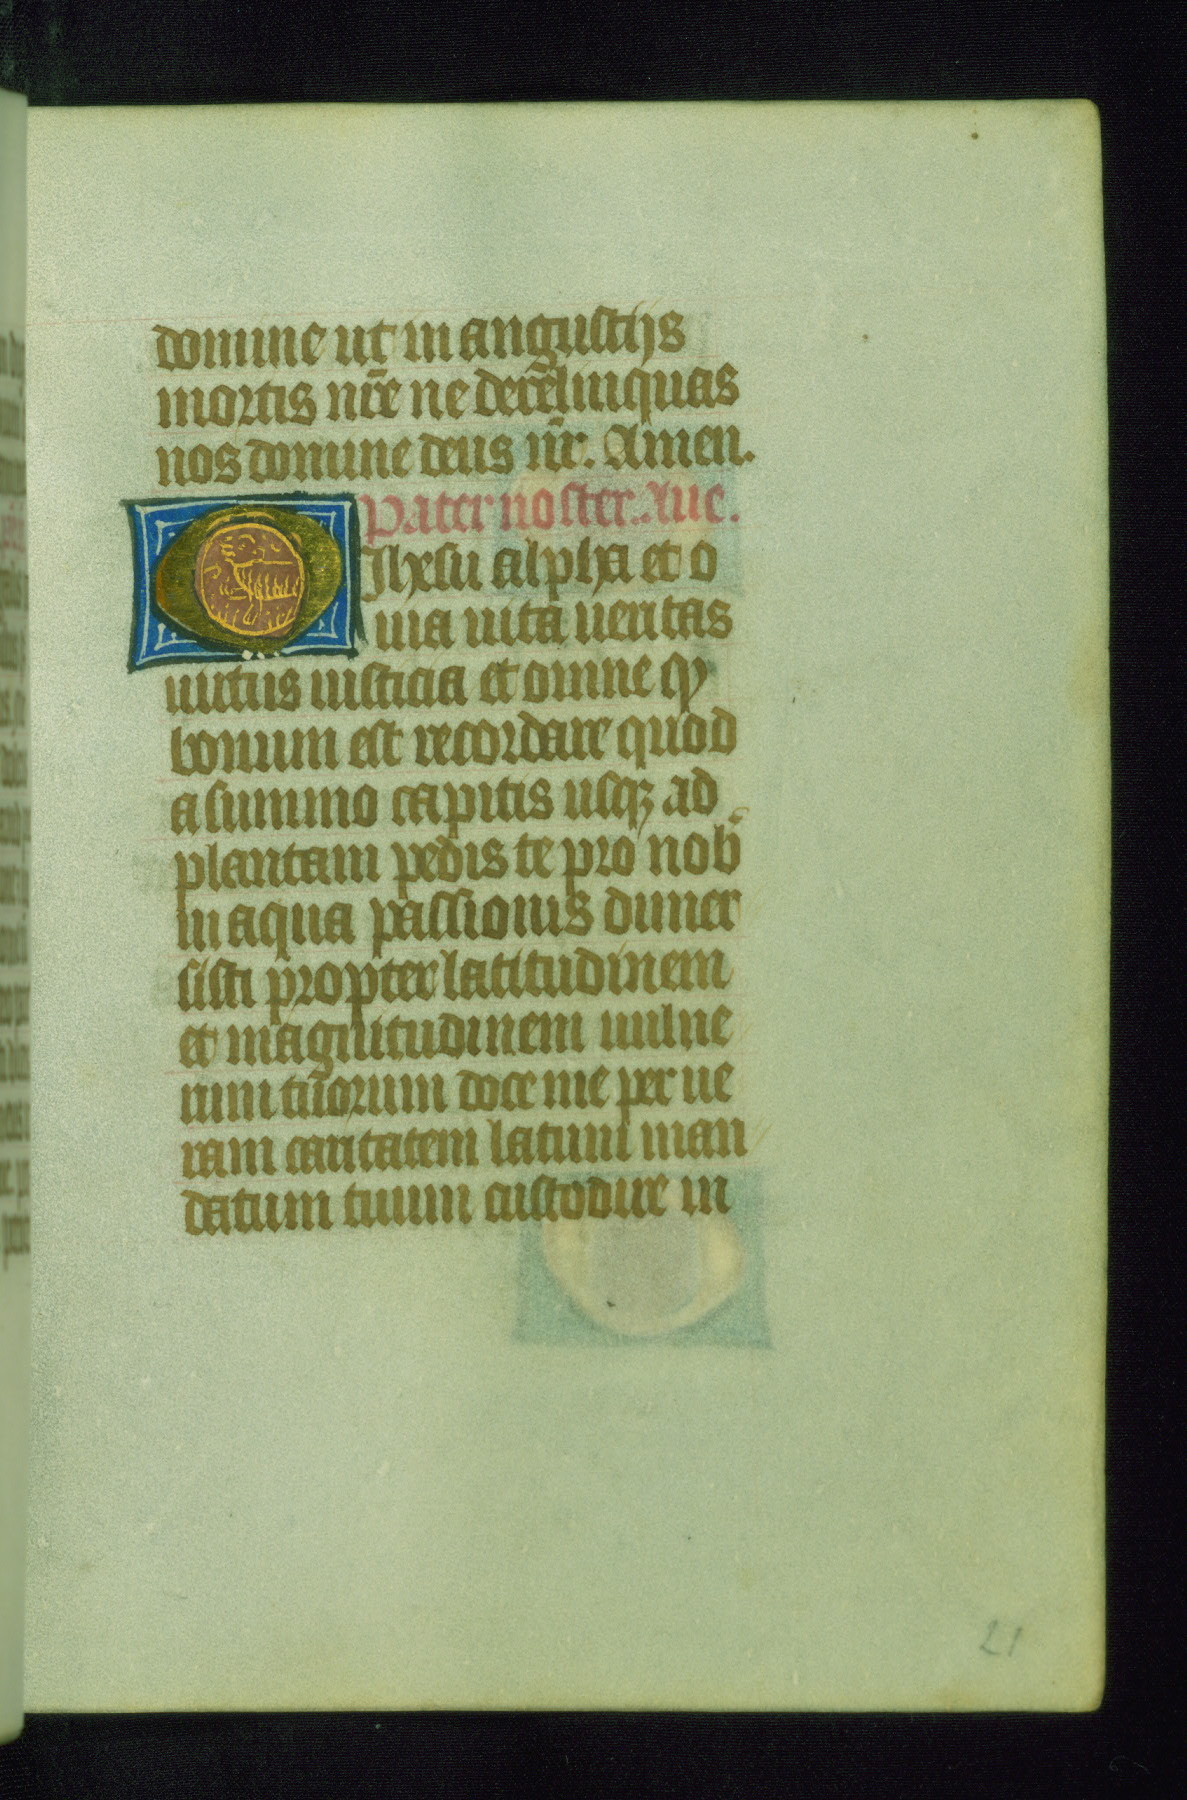 domine ut in angustijs
mortis nr̄e ne derelinquas
nos domine deus nr̄. Amen.
Pater noster. Aue.
O Jhesu alpha et o
uia uita ueritas
uirtus iusticia et omne qͥ
bonum est recordare quod
a summo capitis usqꝫ ad
plantam pedis te pro nob̄
in aqua passionis dimer
sisti propter latitudinem
et magnitudinem uulne
rum tuorum doce me per ue
ram caritatem latum man
datum tuum custodire in
21